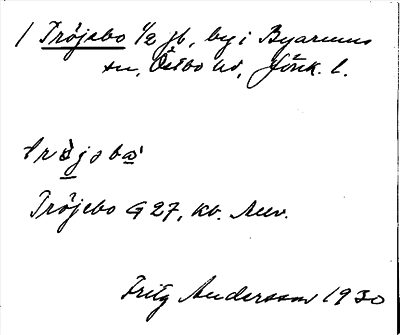 / Tröjebo 1/2 jb, by i Byarums
sn, Östbo hd, Jönk. l.
tröjəbo
Tröjebo G 27, kb.
Fritz Andersson 1930